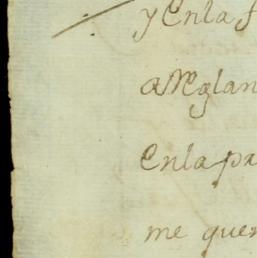 y Enla f
aReglan
Enla pa
me quer